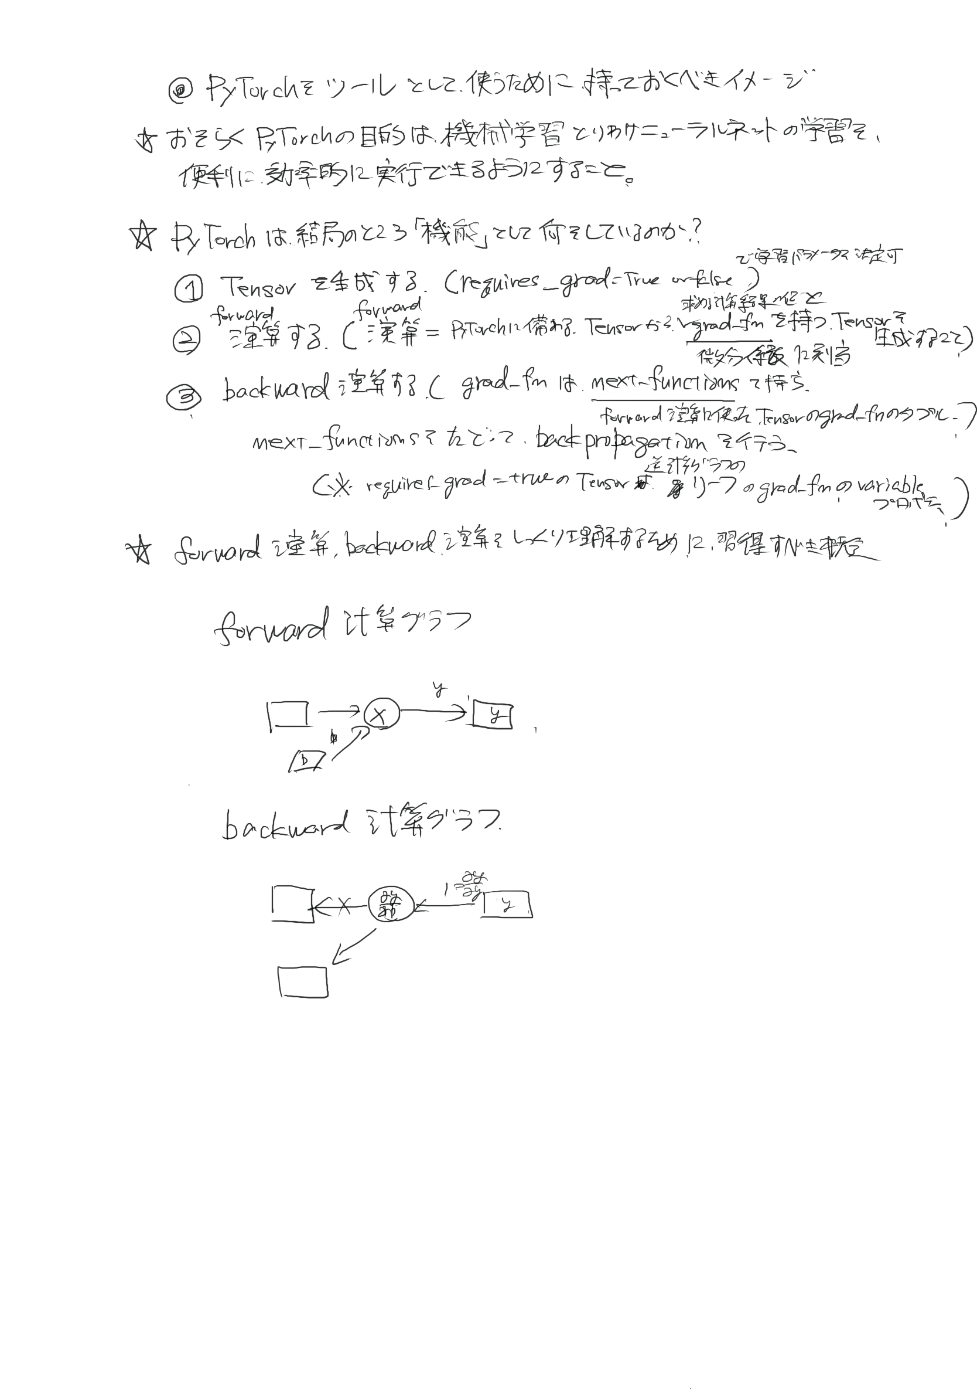 ◎ PyTorchをツールとして、使うために、持っておくべきイメージ
☆ おそらくPyTorchの目的は、機械学習とりわけニューラルネットの学習を、
便利に、効率的に実行できるようにすること。
☆ PyTorchは、結局のところ「機能」として何をしているのか?
で学習パラメータの決定可
① Tensorを生成する. (requires_grad=True or False)
forward forward 計算結果の値と
② 演算する. (演算 = PyTorchに備わる, Tensorから, grad_fnを持つ, Tensorを生成すること)
微分係数に割当
③ backward演算する. (grad_fnは, next_functionsで持ち、
forward演算に使った, Tensorのgrad_fnのタプル)
next_functionsをたどって, back propagationを行う、
逆計算グラフの
(※ requires_grad=trueのTensorは, リーフのgrad_fnのvariable
プロパティ)
☆ forward演算, backward演算をしっくり理解するために, 習得すべき概念
forward 計算グラフ
y
× y
b
backward 計算グラフ
1=∂y/∂y
× y